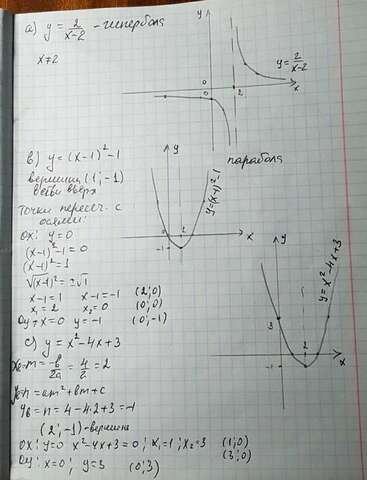 а) y = 2/(x-2) - гипербола
x≠2
y
y = 2/(x-2)
0
0
2
x
в) y = (x-1)² - 1
парабола
вершина (1; -1)
ветви вверх
точки пересеч. с
осями:
ox: y = 0
(x-1)² - 1 = 0
(x-1)² = 1
√(x-1)² = ±√1
x-1 = 1 x-1 = -1 (2; 0)
x₁ = 2 x₂ = 0 (0; 0)
Oy: x = 0 y = -1 (0; -1)
y
y=(x-1)²-1
0
-1
x
с) y = x² - 4x + 3
x₀=m = -b/2a = 4/2 = 2
y₀=n = am² + bm + c
y₀ = n = 4 - 4·2 + 3 = -1
(2; -1) - вершина
Ox: y=0 x²-4x+3=0; x₁=1; x₂=3 (1; 0)
(3; 0)
Oy: x=0; y=3 (0; 3)
y
y=x²-4x+3
3
2
-1
x